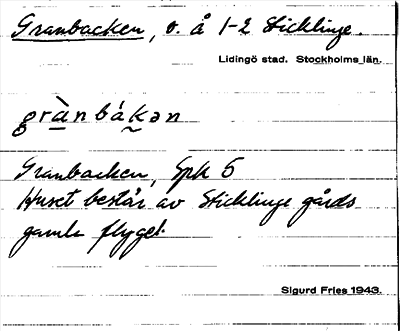 Granbacken, o. å 1-2 Sticklinge.
Lidingö stad. Stockholms län.
grànbákən
Granbacken, Spk 5
Huset består av Sticklinge gårds
gamla flygel.
Sigurd Fries 1943.